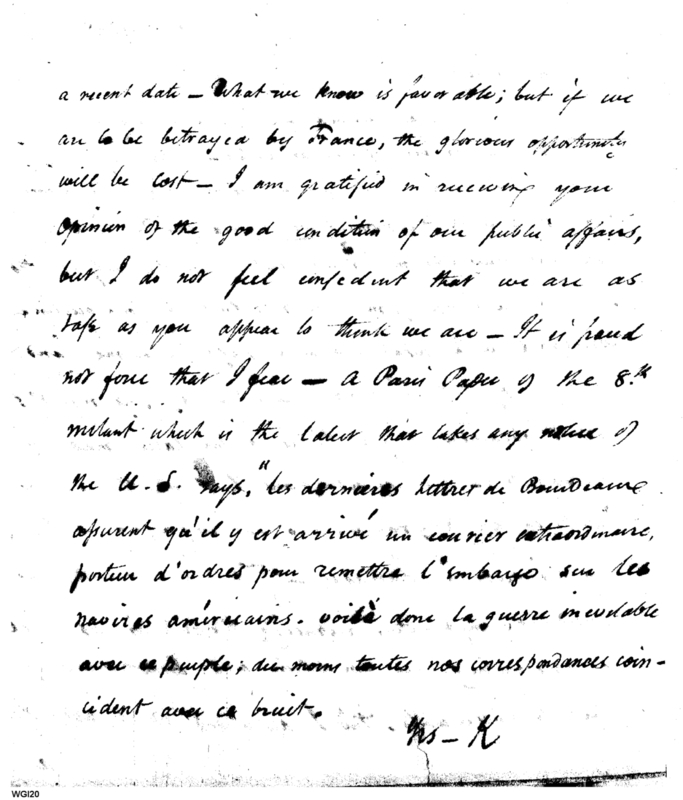 a recent date — What we know is favorable; but if we
are to be betrayed by France, the glorious opportunity
will be lost — I am gratified in receiving your
opinion of the good condition of our public affairs,
but I do not feel confident that we are as
safe as you appear to think we are — It is fraud
not force that I fear — A Paris Paper of the 8.th
instant which is the latest that takes any notice of
the U. S. says, "les dernières lettres de Bourdeaux
assurent qu'il y est arrivé un courier extraordinaire,
porteur d'ordres pour remettre l'embargo sur les
navires américains. voilà donc la guerre inevitable
avec ce peuple; du moins toutes nos correspondances coin-
cident avec ce bruit.
Yrs — K
WGI20